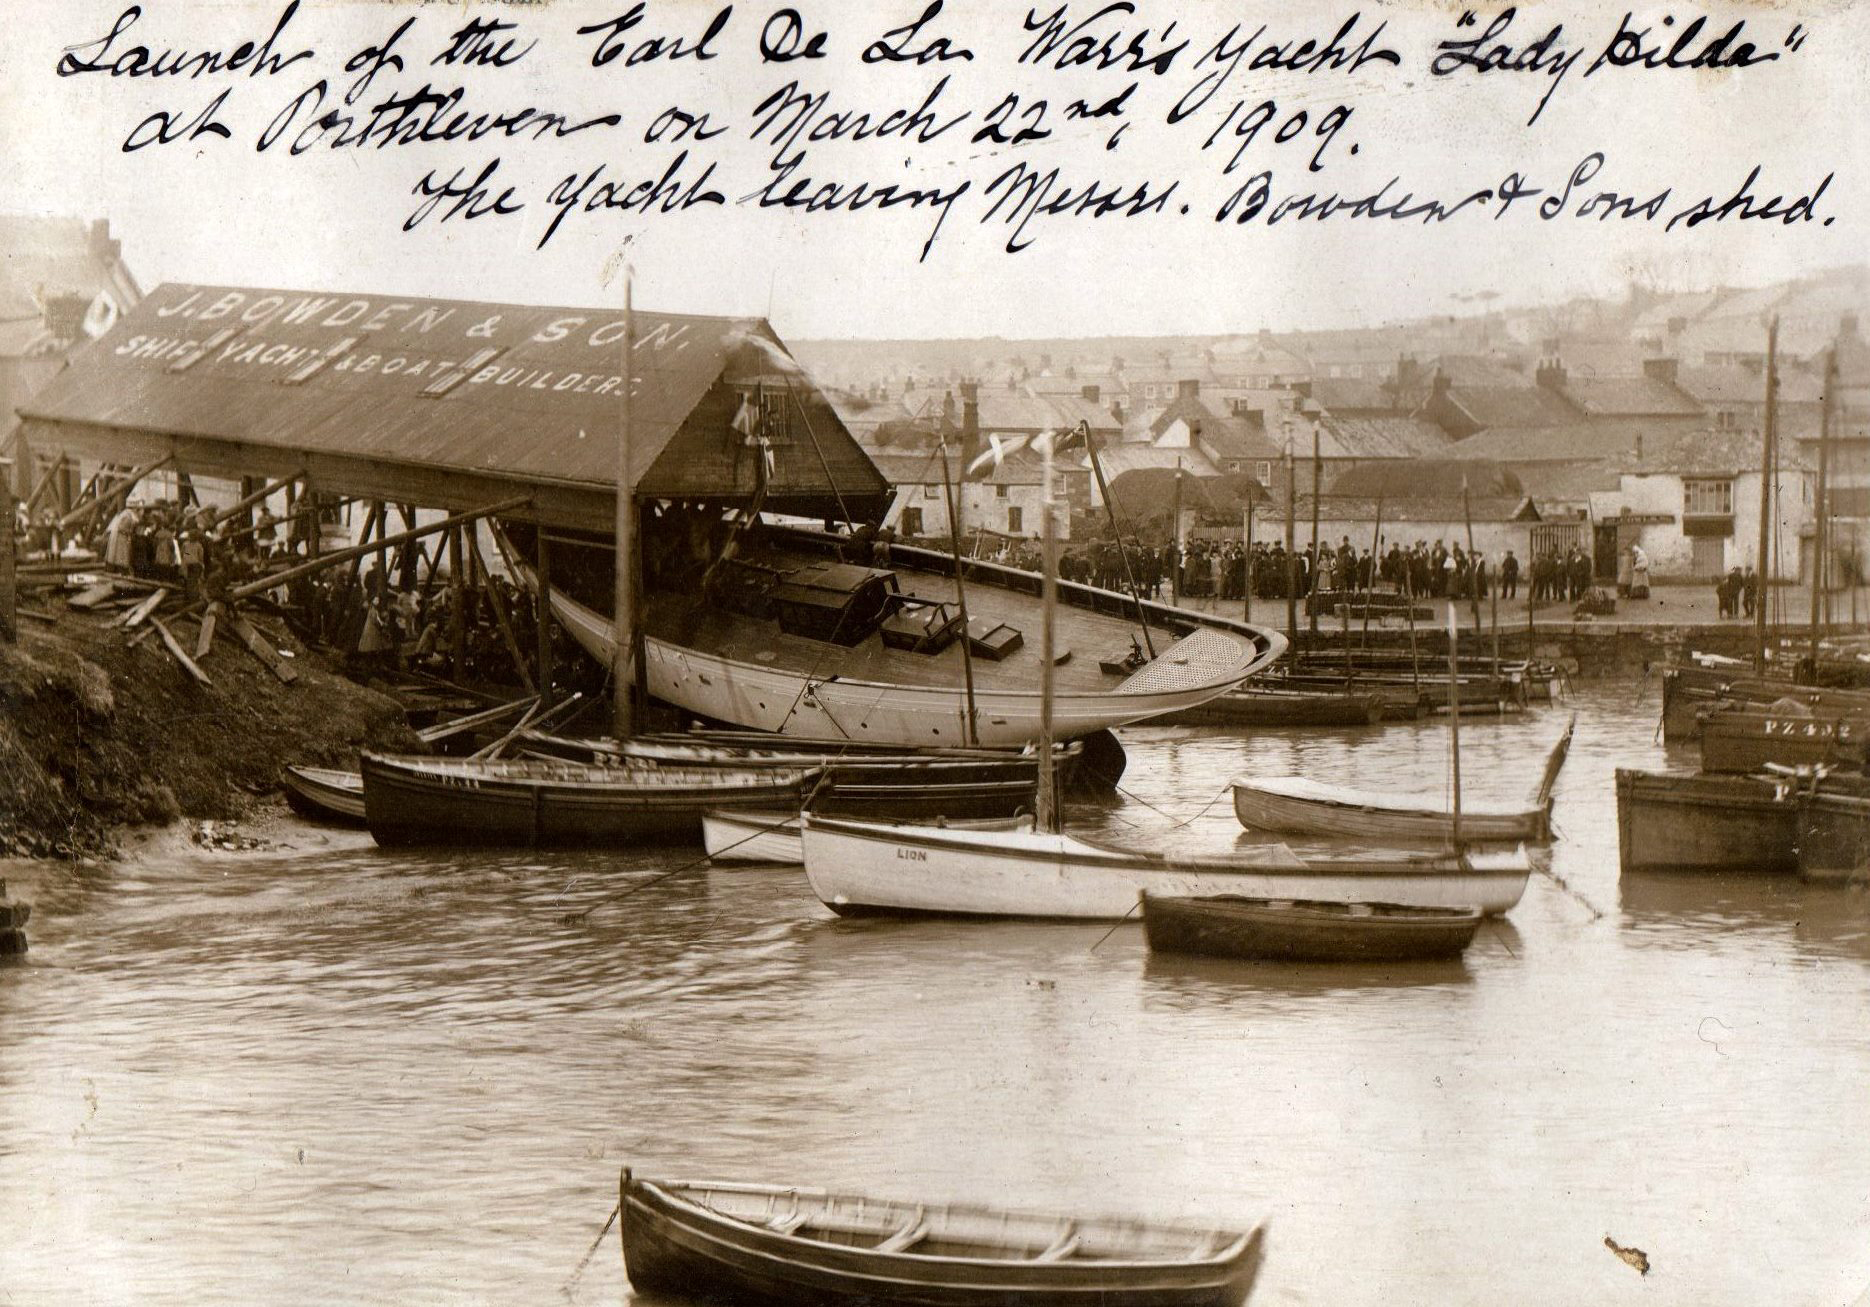 Launch of the Earl De La Warr's Yacht "Lady Hilda"
at Porthleven on March 22nd, 1909.
The Yacht leaving Messrs. Bowden & Sons shed.
J. BOWDEN & SON.
SHIP YACHT & BOAT BUILDERS.
PZ 492
LION
P